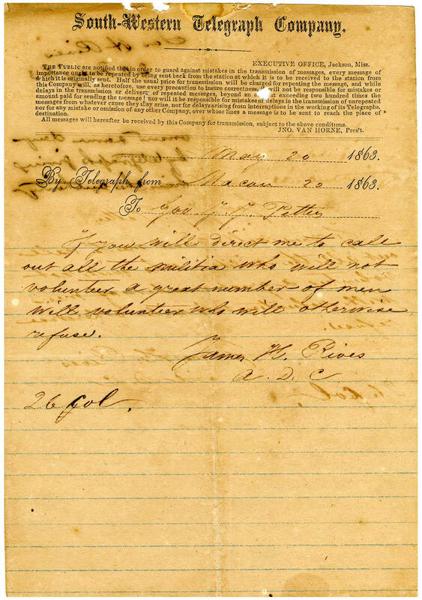 South-Western Telegraph Company.
EXECUTIVE OFFICE, Jackson, Miss.
THE PUBLIC are notified that in order to guard against mistakes in the transmission of messages, every message of
importance ought to be repeated by being sent back from the station at which it is to be received to the station from
which it is originally sent. Half the usual price for transmission will be charged for repeating the message, and while
this Company will, as heretofore, use every precaution to insure correctness, it will not be responsible for mistakes or
delays in the transmission or delivery of repeated messages, beyond an amount exceeding two hundred times the
amount paid for sending the message; nor will it be responsible for mistakes or delays in the transmission of unrepeated
messages from whatever cause they may arise, nor for delays arising from interruptions in the working of its Telegraphs,
nor for any mistake or omission of any other Company, over whose lines a message is to be sent to reach the place of
destination.
All messages will hereafter be received by this Company for transmission, subject to the above conditions.
JNO. VAN HORNE, Pres't.
20 1863.
By Telegraph from Macon 20 1863.
To Gov J. J. Pettus
If you will direct me to call
out all the militia who will not
volunteer a great number of men
will volunteer who will otherwise
refuse.
James H. Rives
A. D. C
26 Col.